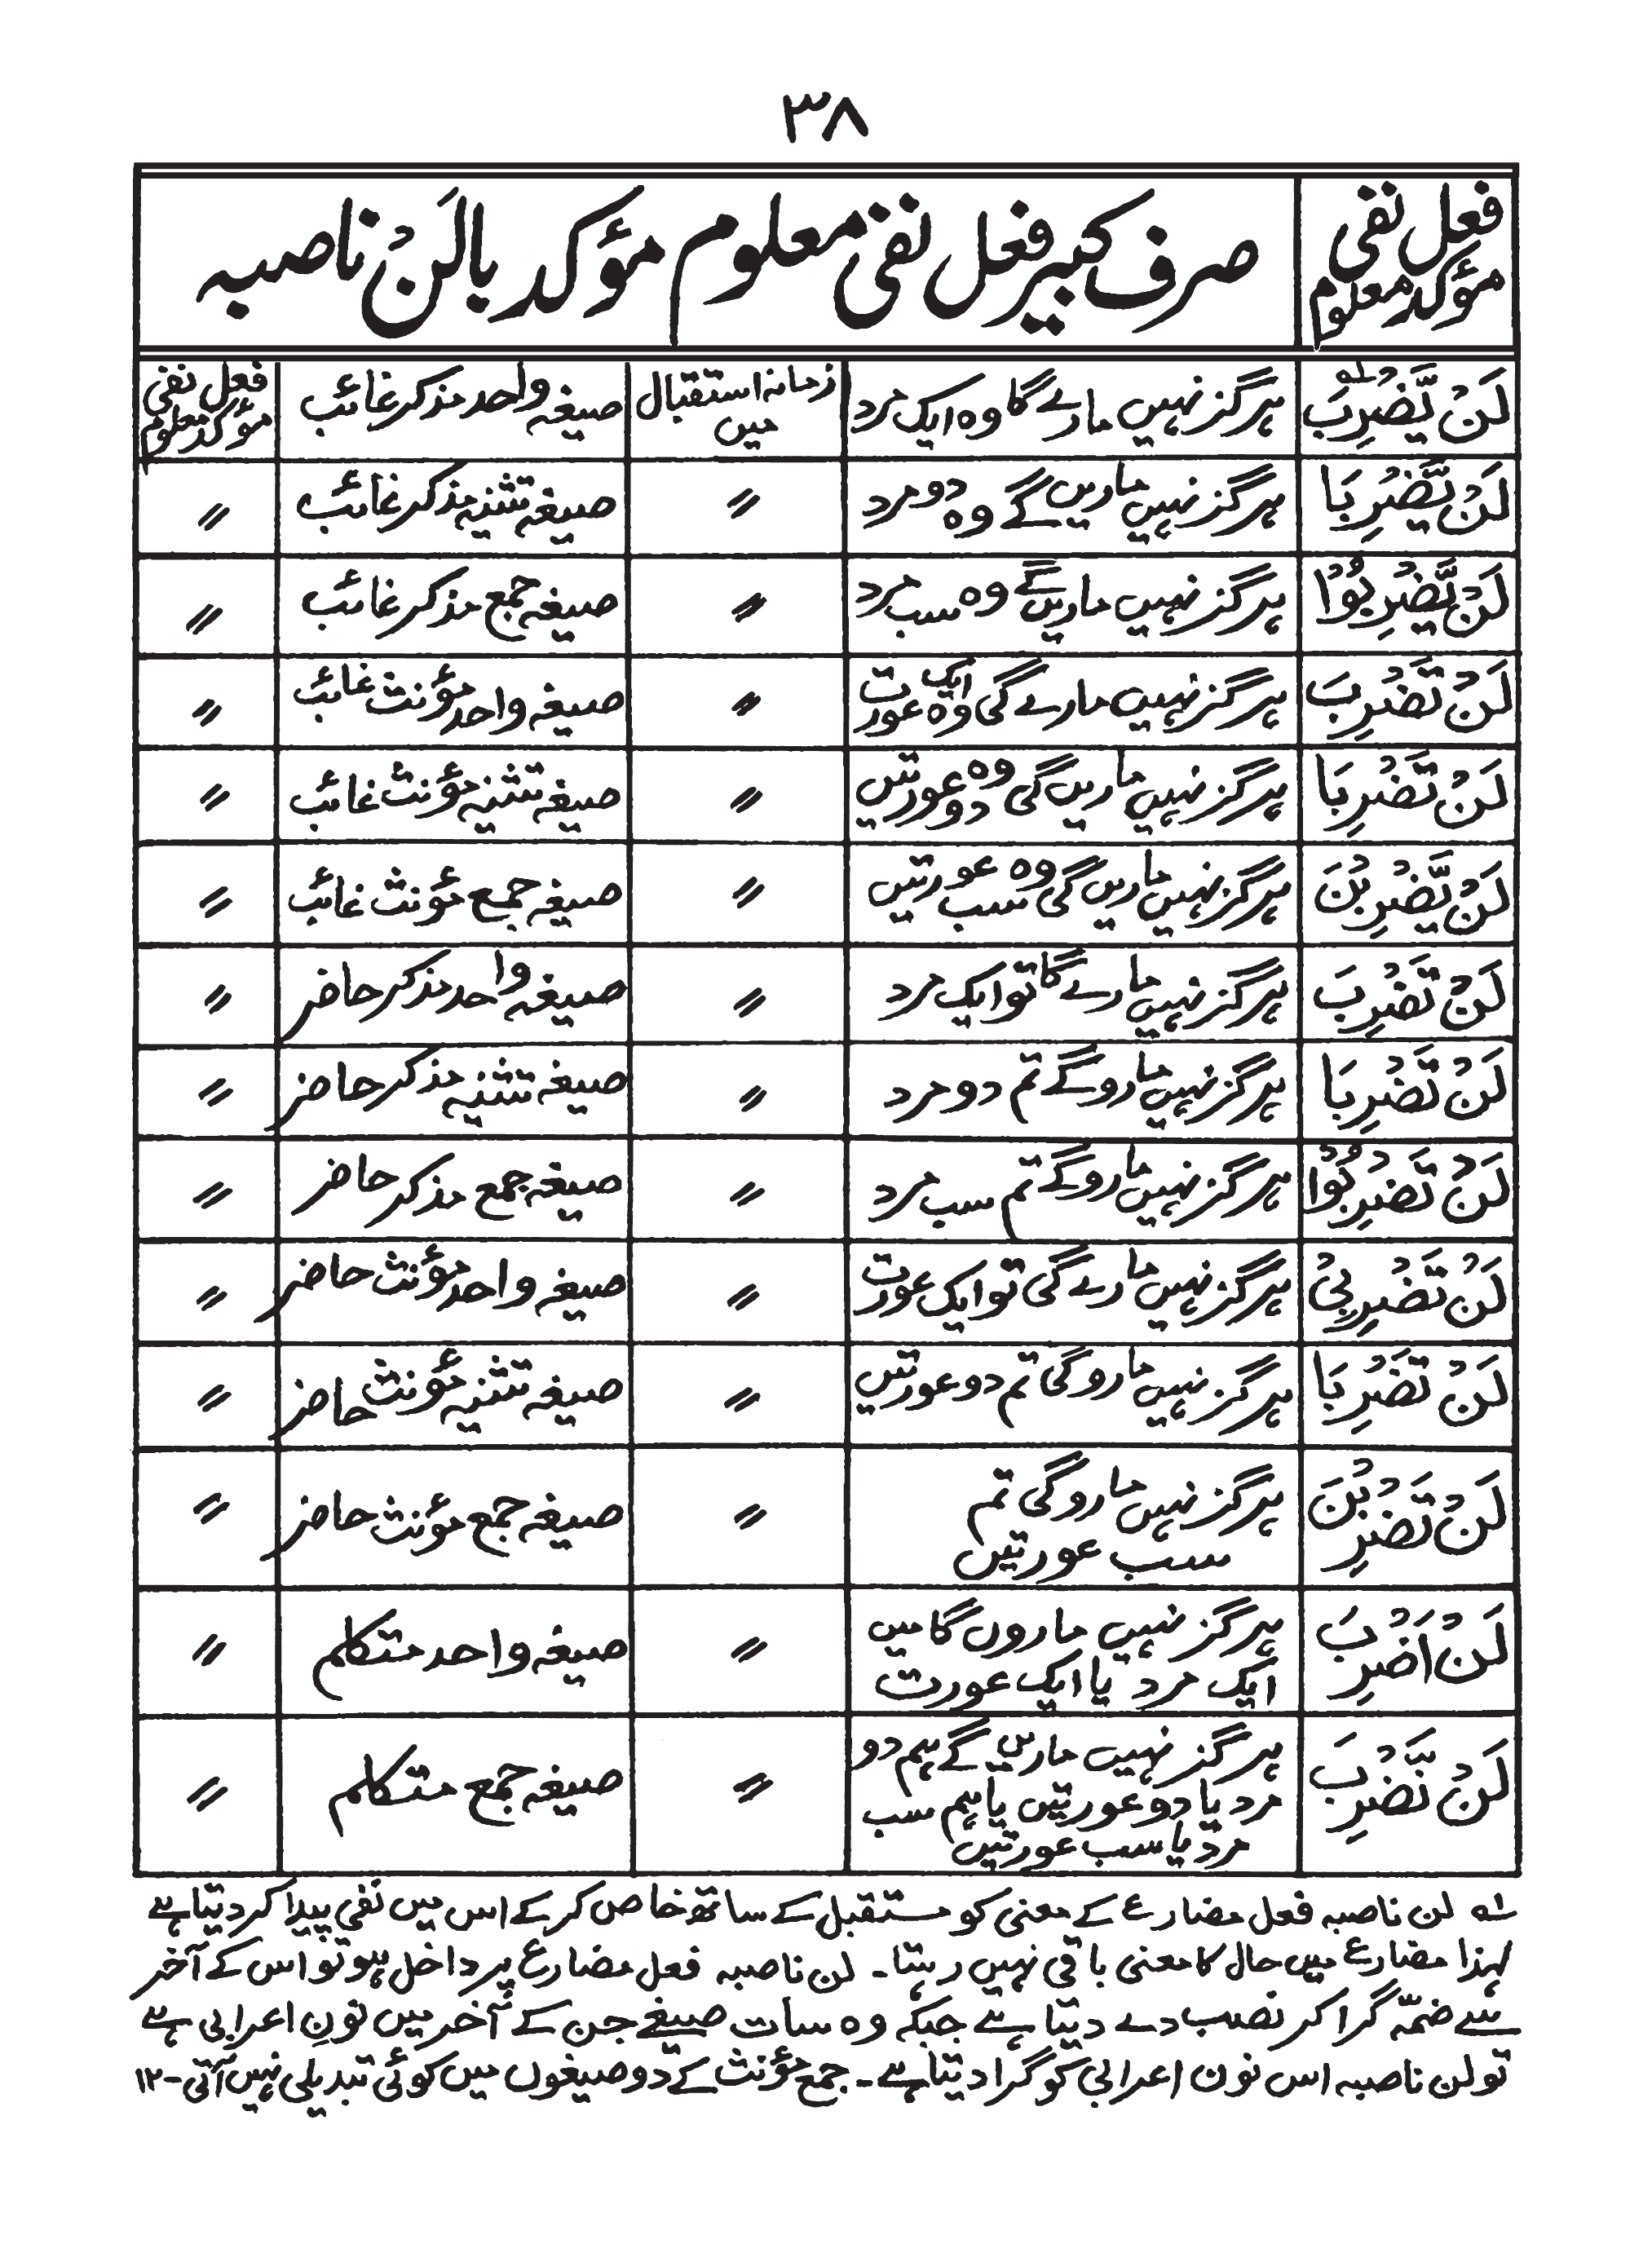 ۳۸
فعل نفی مؤکد معلوم
صرف کبیر فعل نفی معلوم مؤکد بالَنْ ناصبہ
لَنْ یَّضْرِبَ ہرگز نہیں مارے گا وہ ایک مرد زمانہ استقبال میں صیغہ واحد مذکر غائب فعل نفی مؤکد معلوم
لَنْ یَّضْرِبَا ہرگز نہیں ماریں گے وہ دو مرد 〃 صیغہ تثنیہ مذکر غائب 〃
لَنْ یَّضْرِبُوْا ہرگز نہیں ماریں گے وہ سب مرد 〃 صیغہ جمع مذکر غائب 〃
لَنْ تَضْرِبَ ہرگز نہیں مارے گی وہ ایک عورت 〃 صیغہ واحد مؤنث غائب 〃
لَنْ تَضْرِبَا ہرگز نہیں ماریں گی وہ دو عورتیں 〃 صیغہ تثنیہ مؤنث غائب 〃
لَنْ یَّضْرِبْنَ ہرگز نہیں ماریں گی وہ سب عورتیں 〃 صیغہ جمع مؤنث غائب 〃
لَنْ تَضْرِبَ ہرگز نہیں مارے گا تو ایک مرد 〃 صیغہ واحد مذکر حاضر 〃
لَنْ تَضْرِبَا ہرگز نہیں مارو گے تم دو مرد 〃 صیغہ تثنیہ مذکر حاضر 〃
لَنْ تَضْرِبُوْا ہرگز نہیں مارو گے تم سب مرد 〃 صیغہ جمع مذکر حاضر 〃
لَنْ تَضْرِبِیْ ہرگز نہیں مارے گی تو ایک عورت 〃 صیغہ واحد مؤنث حاضر 〃
لَنْ تَضْرِبَا ہرگز نہیں مارو گی تم دو عورتیں 〃 صیغہ تثنیہ مؤنث حاضر 〃
لَنْ تَضْرِبْنَ ہرگز نہیں مارو گی تم
سب عورتیں 〃 صیغہ جمع مؤنث حاضر 〃
لَنْ اَضْرِبَ ہرگز نہیں ماروں گا میں
ایک مرد یا ایک عورت 〃 صیغہ واحد متکلم 〃
لَنْ نَّضْرِبَ ہرگز نہیں ماریں گے ہم دو
مرد یا دو عورتیں یا ہم سب
مرد یا سب عورتیں 〃 صیغہ جمع متکلم 〃
؂۱ لن ناصبہ فعل مضارع کے معنی کو مستقبل کے ساتھ خاص کر کے اس میں نفی پیدا کر دیتا ہے
لہذا مضارع میں حال کا معنی باقی نہیں رہتا۔ لن ناصبہ فعل مضارع پر داخل ہو تو اس کے آخر
سے ضمّہ گرا کر نصب دے دیتا ہے جبکہ وہ سات صیغے جن کے آخر میں نونِ اعرابی ہے
تو لن ناصبہ اس نون اعرابی کو گرا دیتا ہے۔ جمع مؤنث کے دو صیغوں میں کوئی تبدیلی نہیں آتی۔۱۲